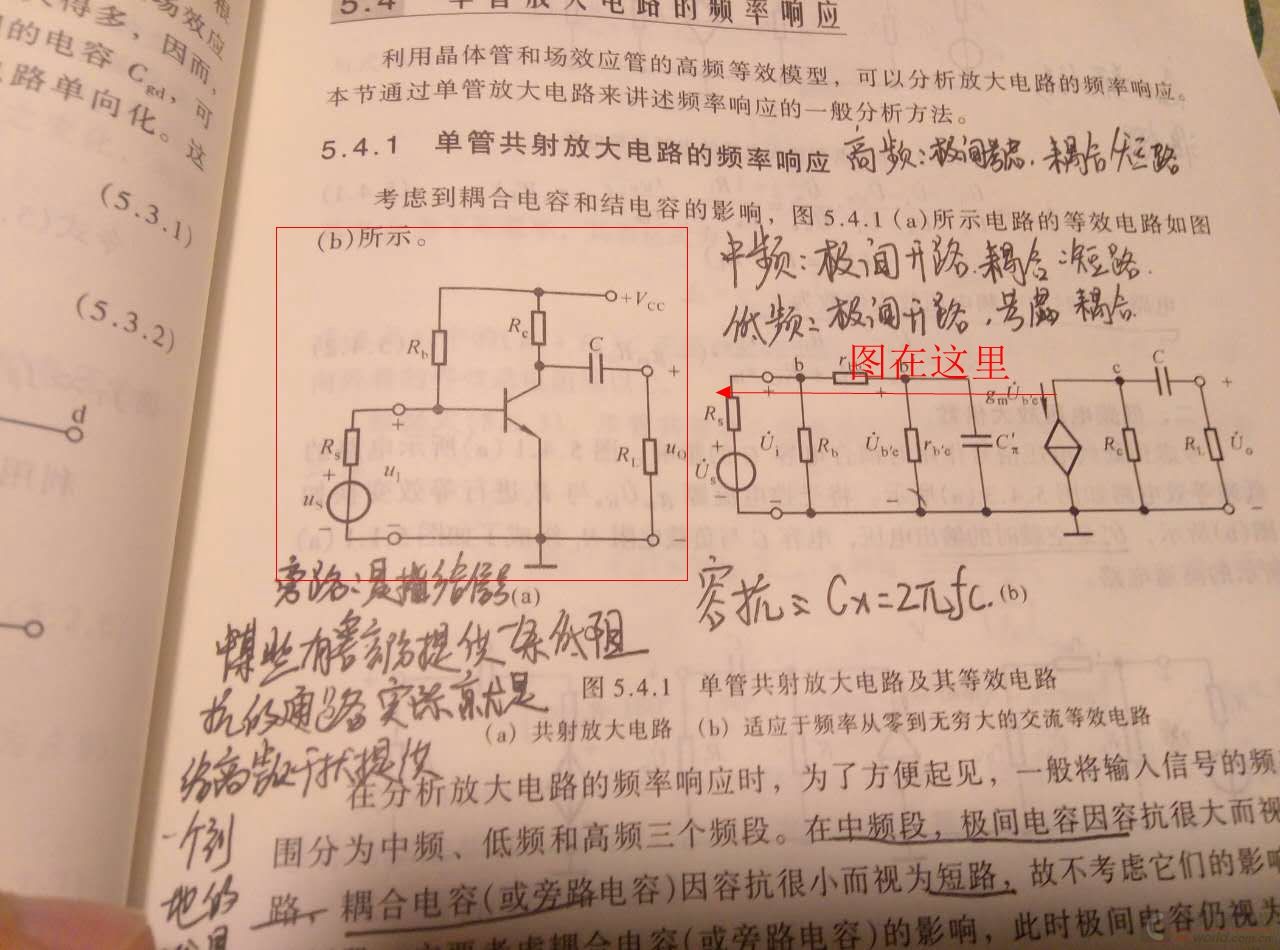 根
场效应
得多，因而，
的电容 Cgd，可
路单向化。这
(5.3.1)
(5.3.2)
d
5.4 单管放大电路的频率响应
利用晶体管和场效应管的高频等效模型，可以分析放大电路的频率响应。
本节通过单管放大电路来讲述频率响应的一般分析方法。
5.4.1 单管共射放大电路的频率响应
高频：极间考虑．耦合短路
考虑到耦合电容和结电容的影响，图 5.4.1 (a)所示电路的等效电路如图
(b)所示。
中频：极间开路．耦合短路．
低频：极间开路．考虑耦合．
图在这里
+VCC
Rb
Rc
C
+
Rs
+
uS
−
+
uI
−
RL
uO
−
Rs
+
U̇s
−
+
U̇i
−
b
Rb
b′
+
U̇b′e
−
rb′e
C′π
gmU̇b′e
c
Rc
C
RL
+
U̇o
−
(a)
(b)
旁路：是指给信号
中某些有害部分提供一条低阻
抗的通路实际就是
给高频干扰提供
一个到
地的
容抗：Cx=2πfc.
图 5.4.1 单管共射放大电路及其等效电路
(a) 共射放大电路 (b) 适应于频率从零到无穷大的交流等效电路
在分析放大电路的频率响应时，为了方便起见，一般将输入信号的频
围分为中频、低频和高频三个频段。在中频段，极间电容因容抗很大而视
路，耦合电容(或旁路电容)因容抗很小而视为短路，故不考虑它们的影响
主要考虑耦合电容(或旁路电容)的影响，此时极间电容仍视为